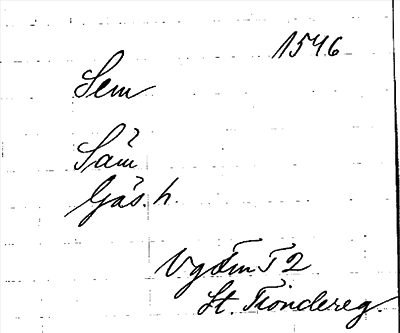 1546
Sem
Säm
Gäs. h.
Vg Fm T 2
St. Tiondereg.